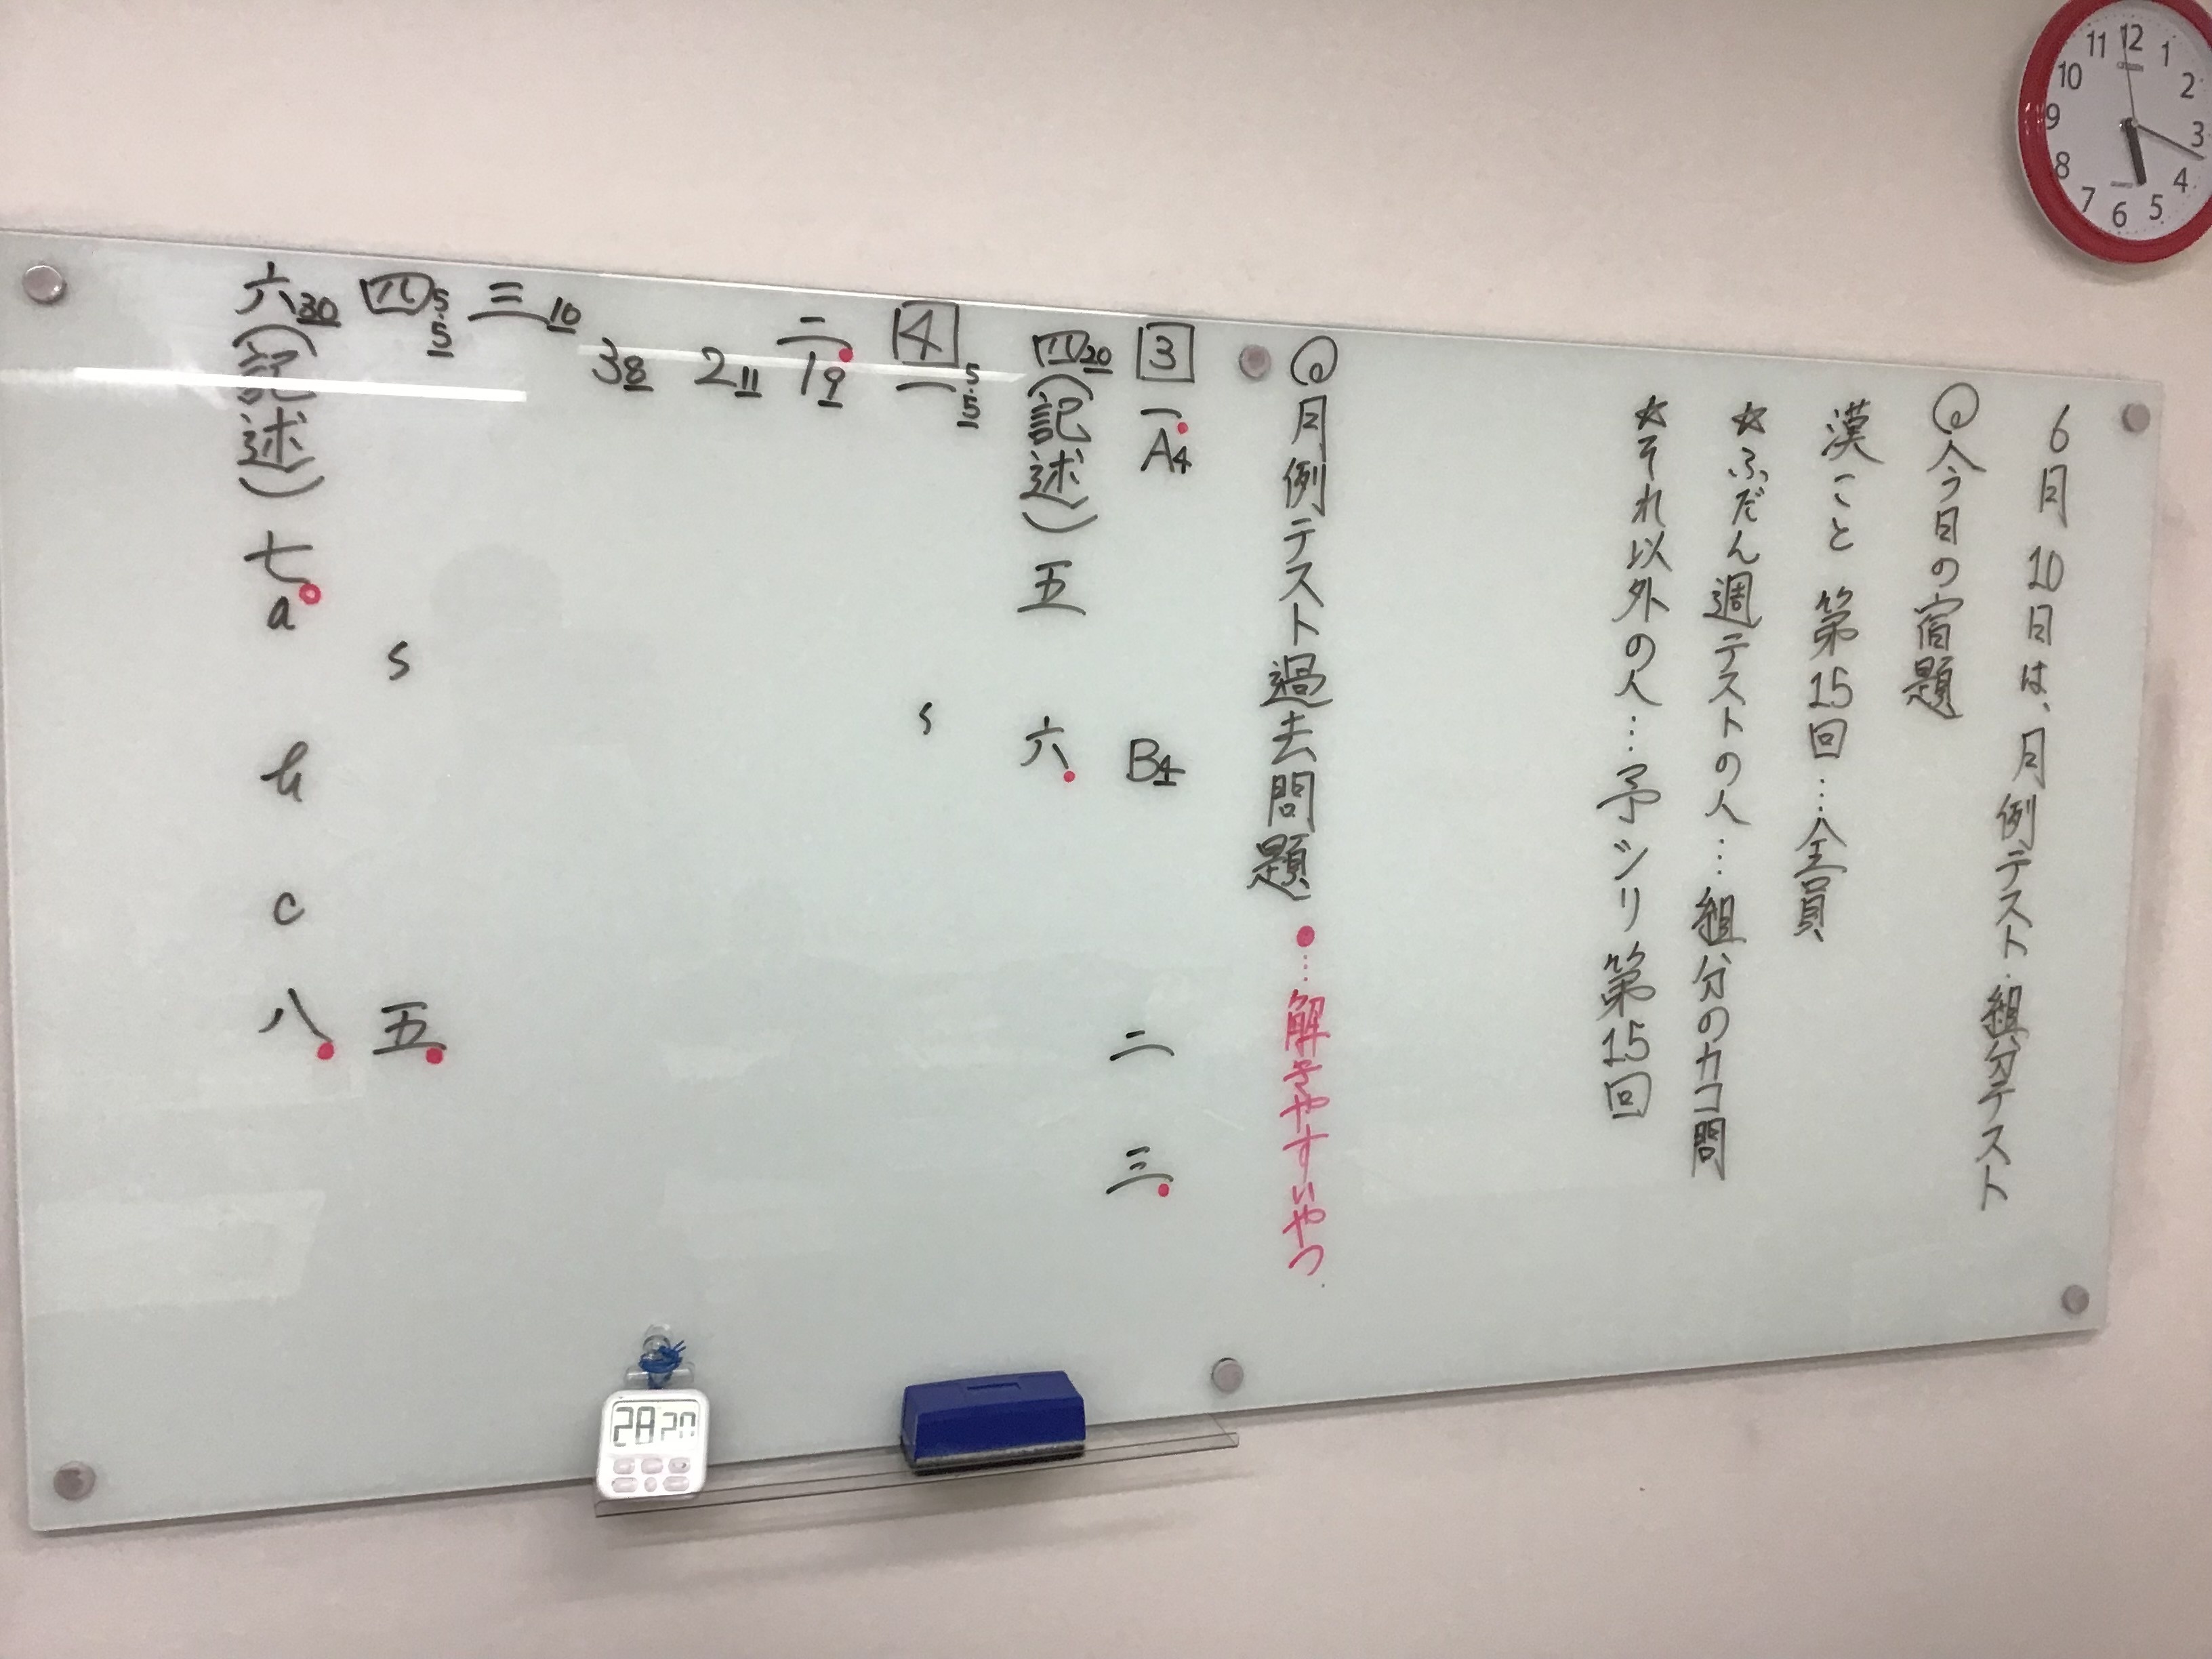 6月10日は、月例テスト・組分テスト
◎今日の宿題
漢こと 第15回…全員
☆ふだん週テストの人…組分のカコ問
☆それ以外の人…予シリ第15回
◎月例テスト過去問題 ●…解きやすいやつ
3 一 A4 B4 二 三
四20(記述) 五 六
4 一5.5 s
二 19
211
38
三10
四5.5 s 五
六30(記述) 七 a b c 八
28 27
12
1
2
3
4
5
6
7
8
9
10
11